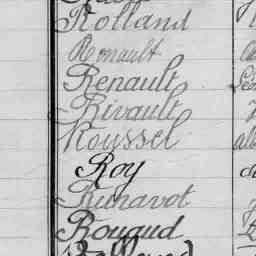 Rolland
Renault
Renault
Rivault
Roussel
Roy
Runavot
Rouaud